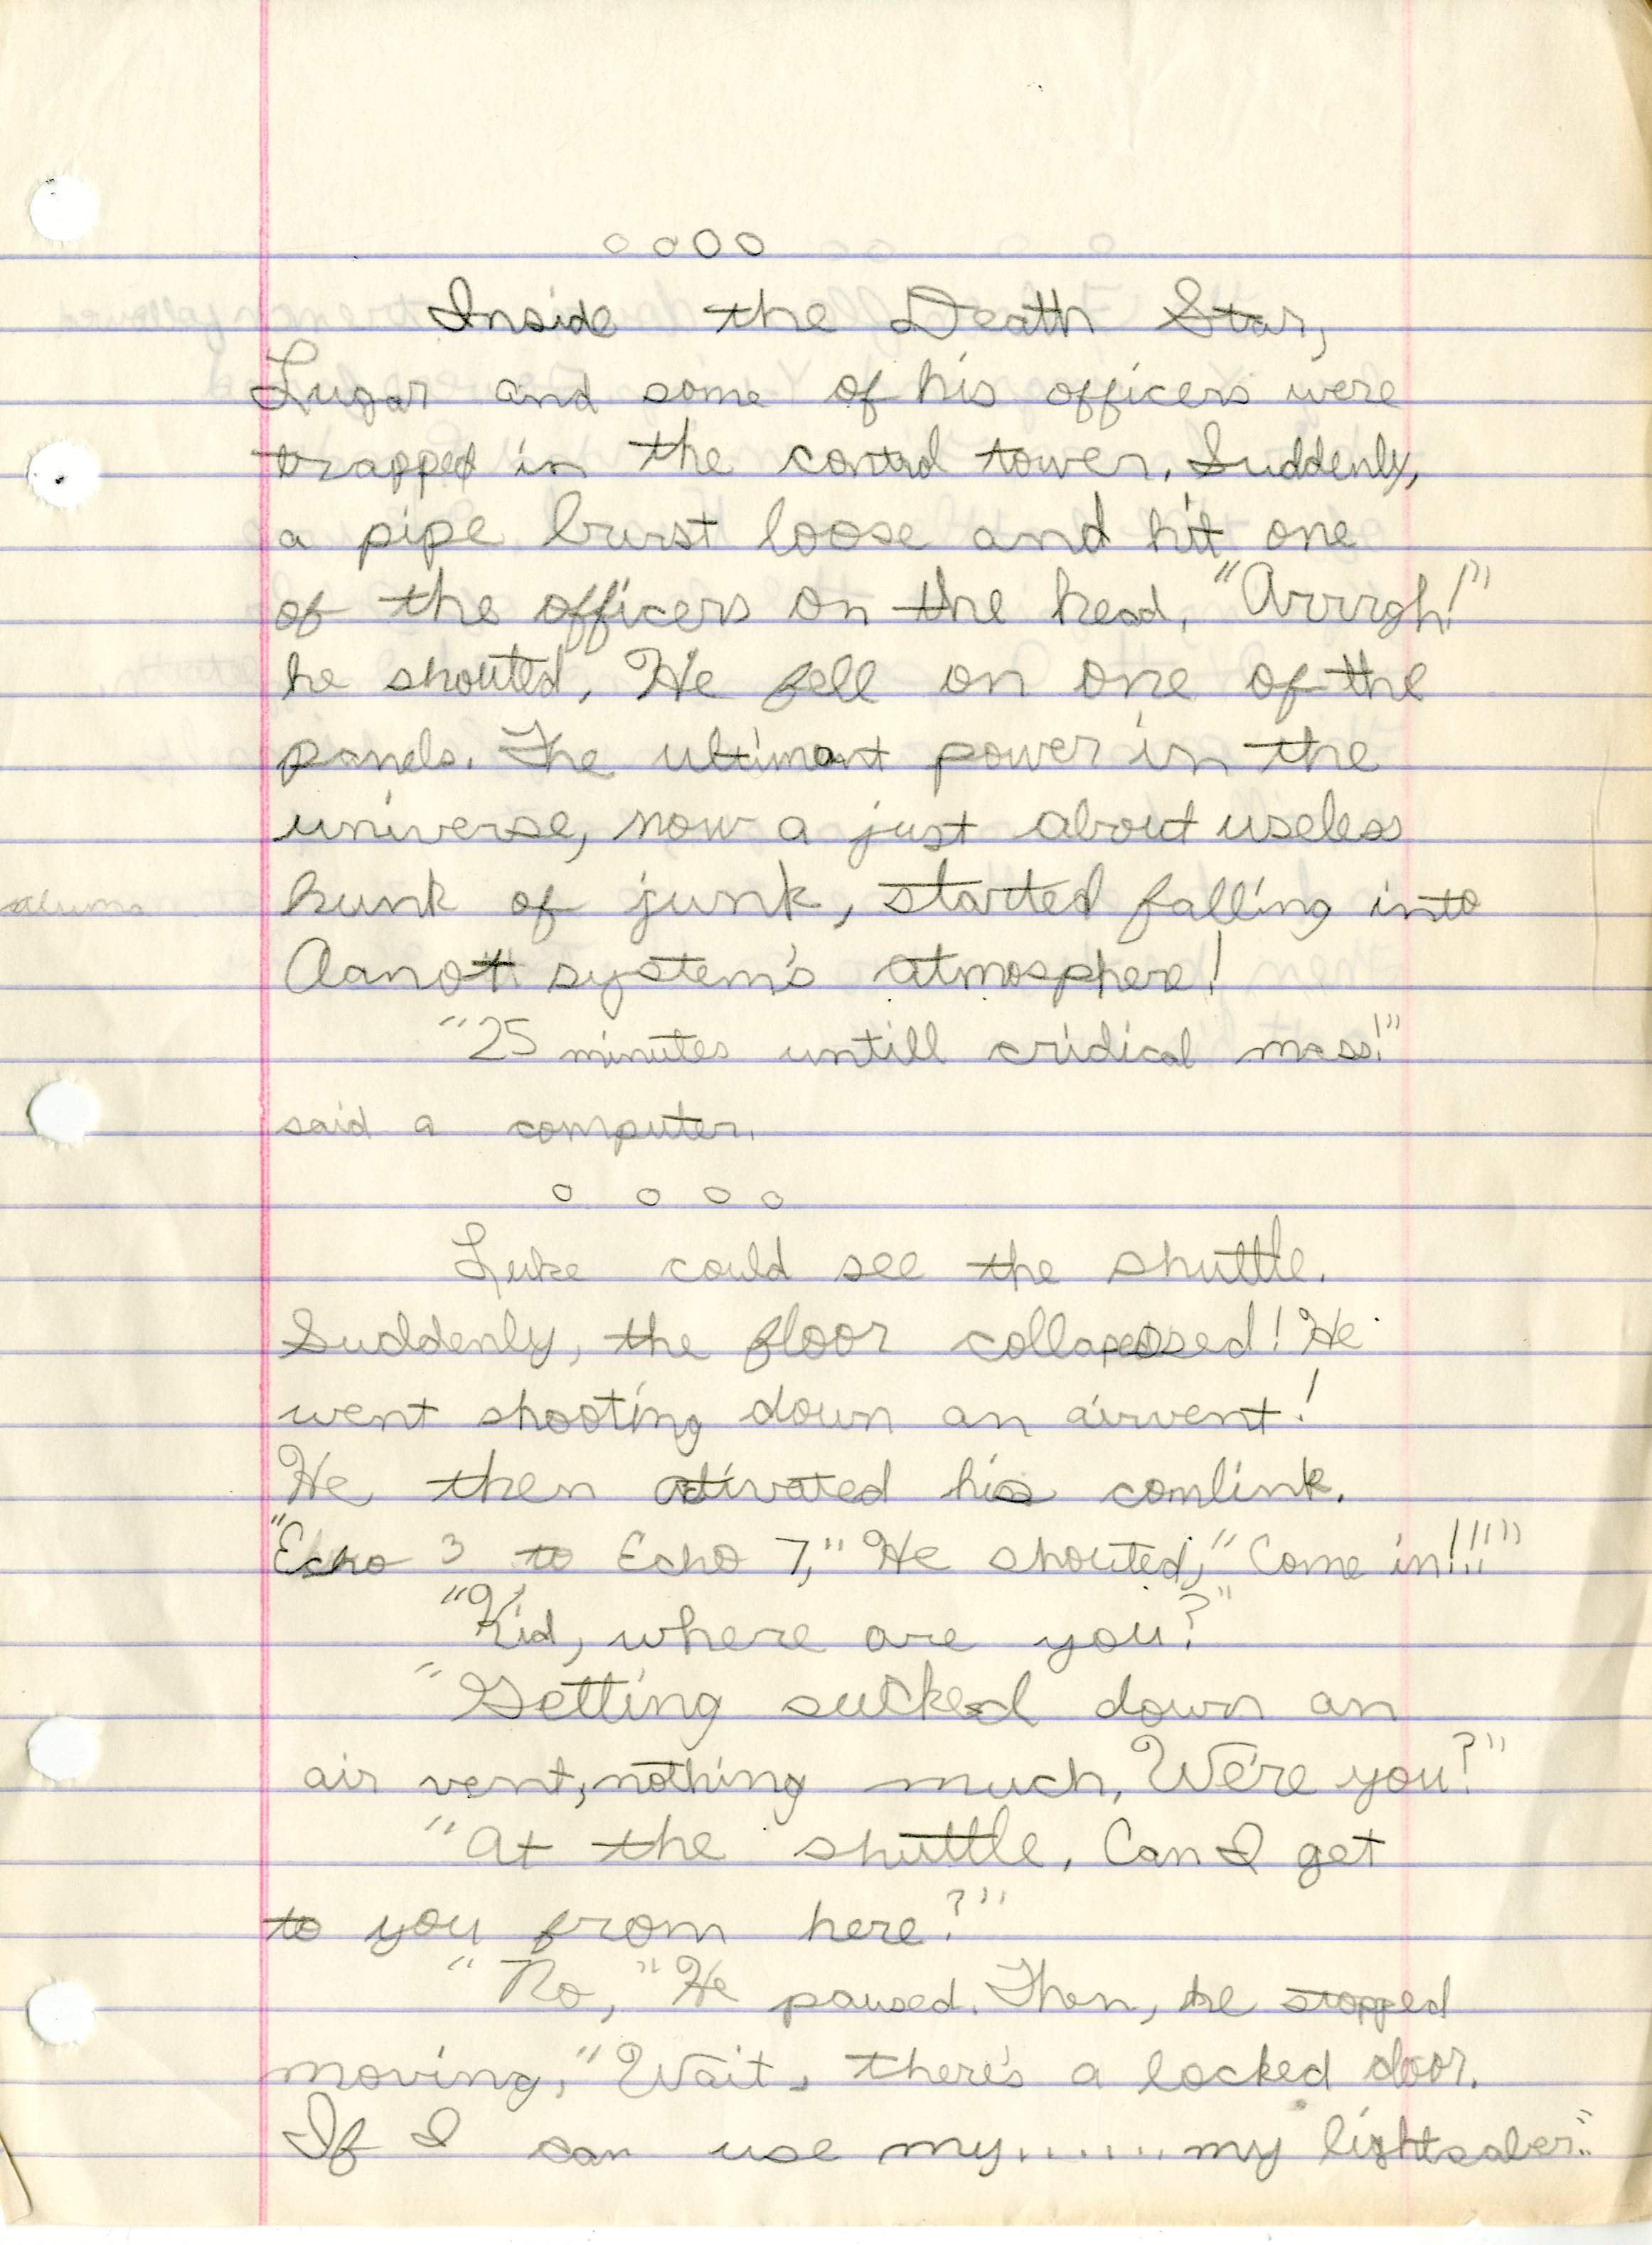 oooo
Inside the Death Star,
Lugar and some of his officers were
trapped in the control tower. Suddenly,
a pipe burst loose and hit one
of the officers on the head. "Arrrgh!"
he shouted. He fell on one of the
panels. The ultimant power in the
universe, now a just about useless
hunk of junk, started falling into
Aanott system's atmosphere!
"25 minutes untill cridical mass!"
said a computer.
o o o o
Luke could see the shuttle.
Suddenly, the floor collapessed! He
went shooting down an airvent!
He then ativated his comlink.
"Echo 3 to Echo 7," He shouted, "Come in!!!!"
"Kid, where are you?"
"Getting sucked down an
air vent, nothing much. We're you?"
"At the shuttle. Can I get
to you from here?"
"No," He paused. Then, he stopped
moving, "Wait, there's a locked door.
If I can use my.......my lightsaber."